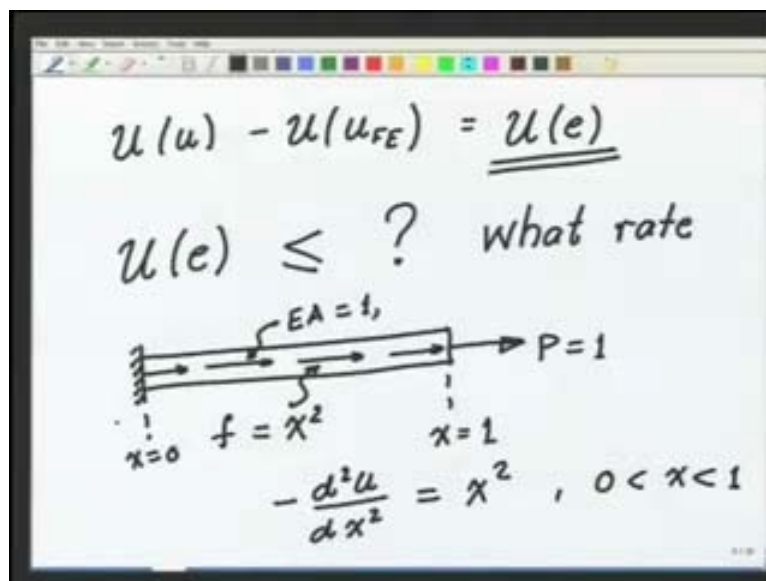 U(u) - U(u_FE) = U(e)
U(e) ≤ ? what rate
EA = 1,
P = 1
f = x²
x=0
x = 1
- d²u/dx² = x² , 0 < x < 1